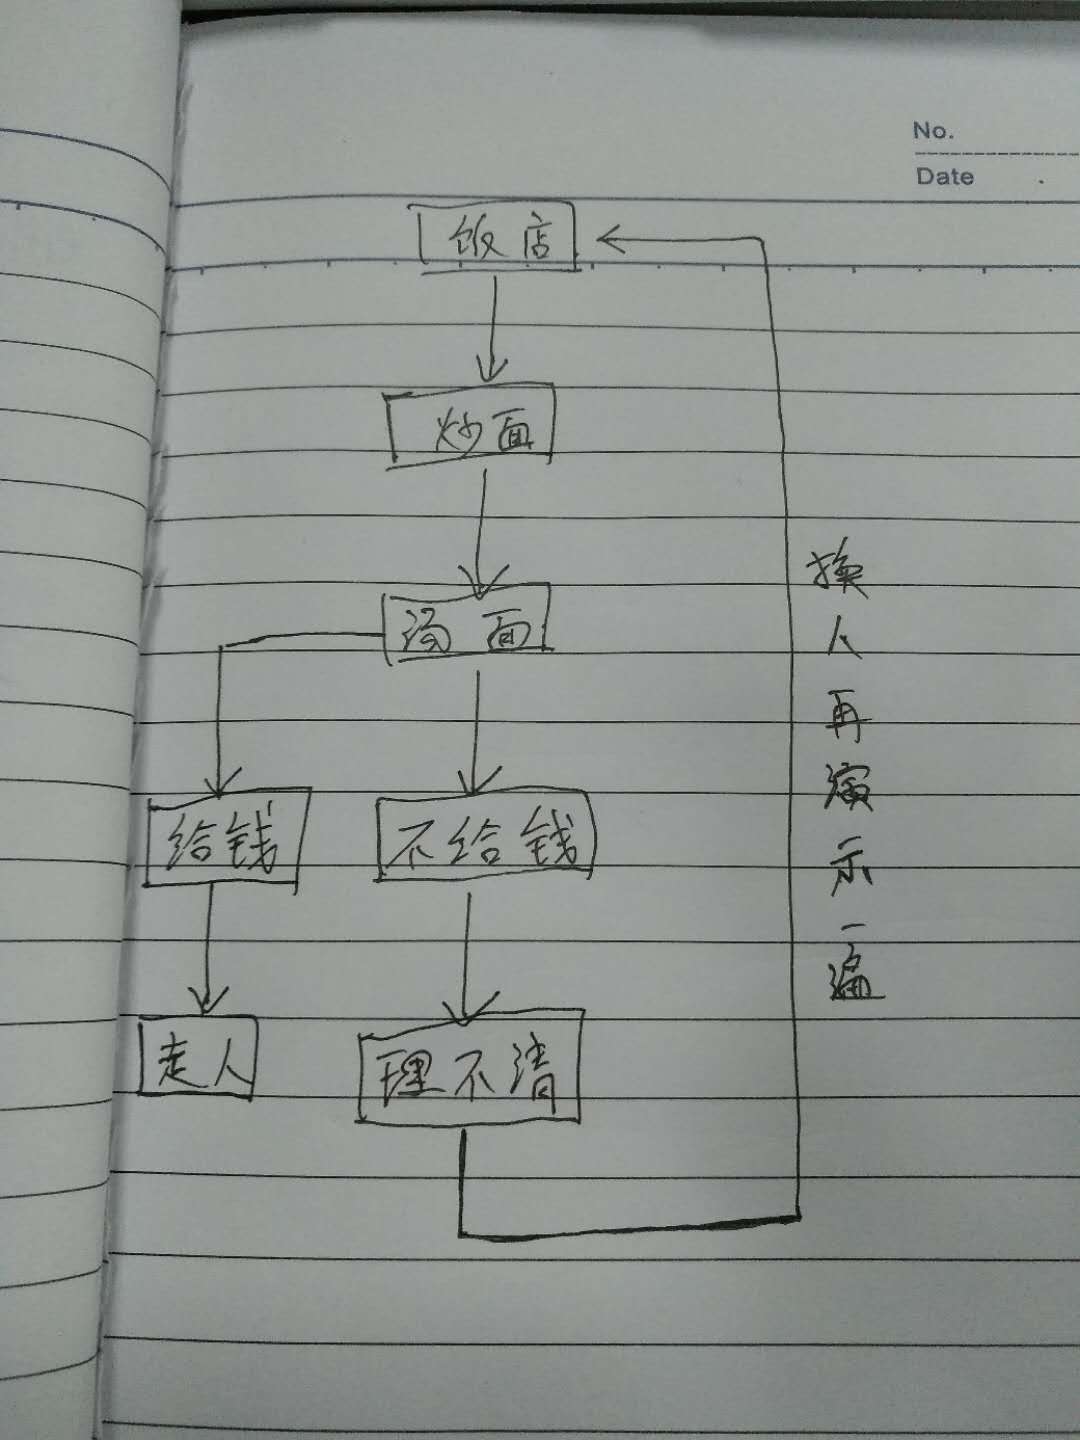 No.
Date
饭店
炒面
汤面
给钱
不给钱
走人
理不清
换人再演示一遍